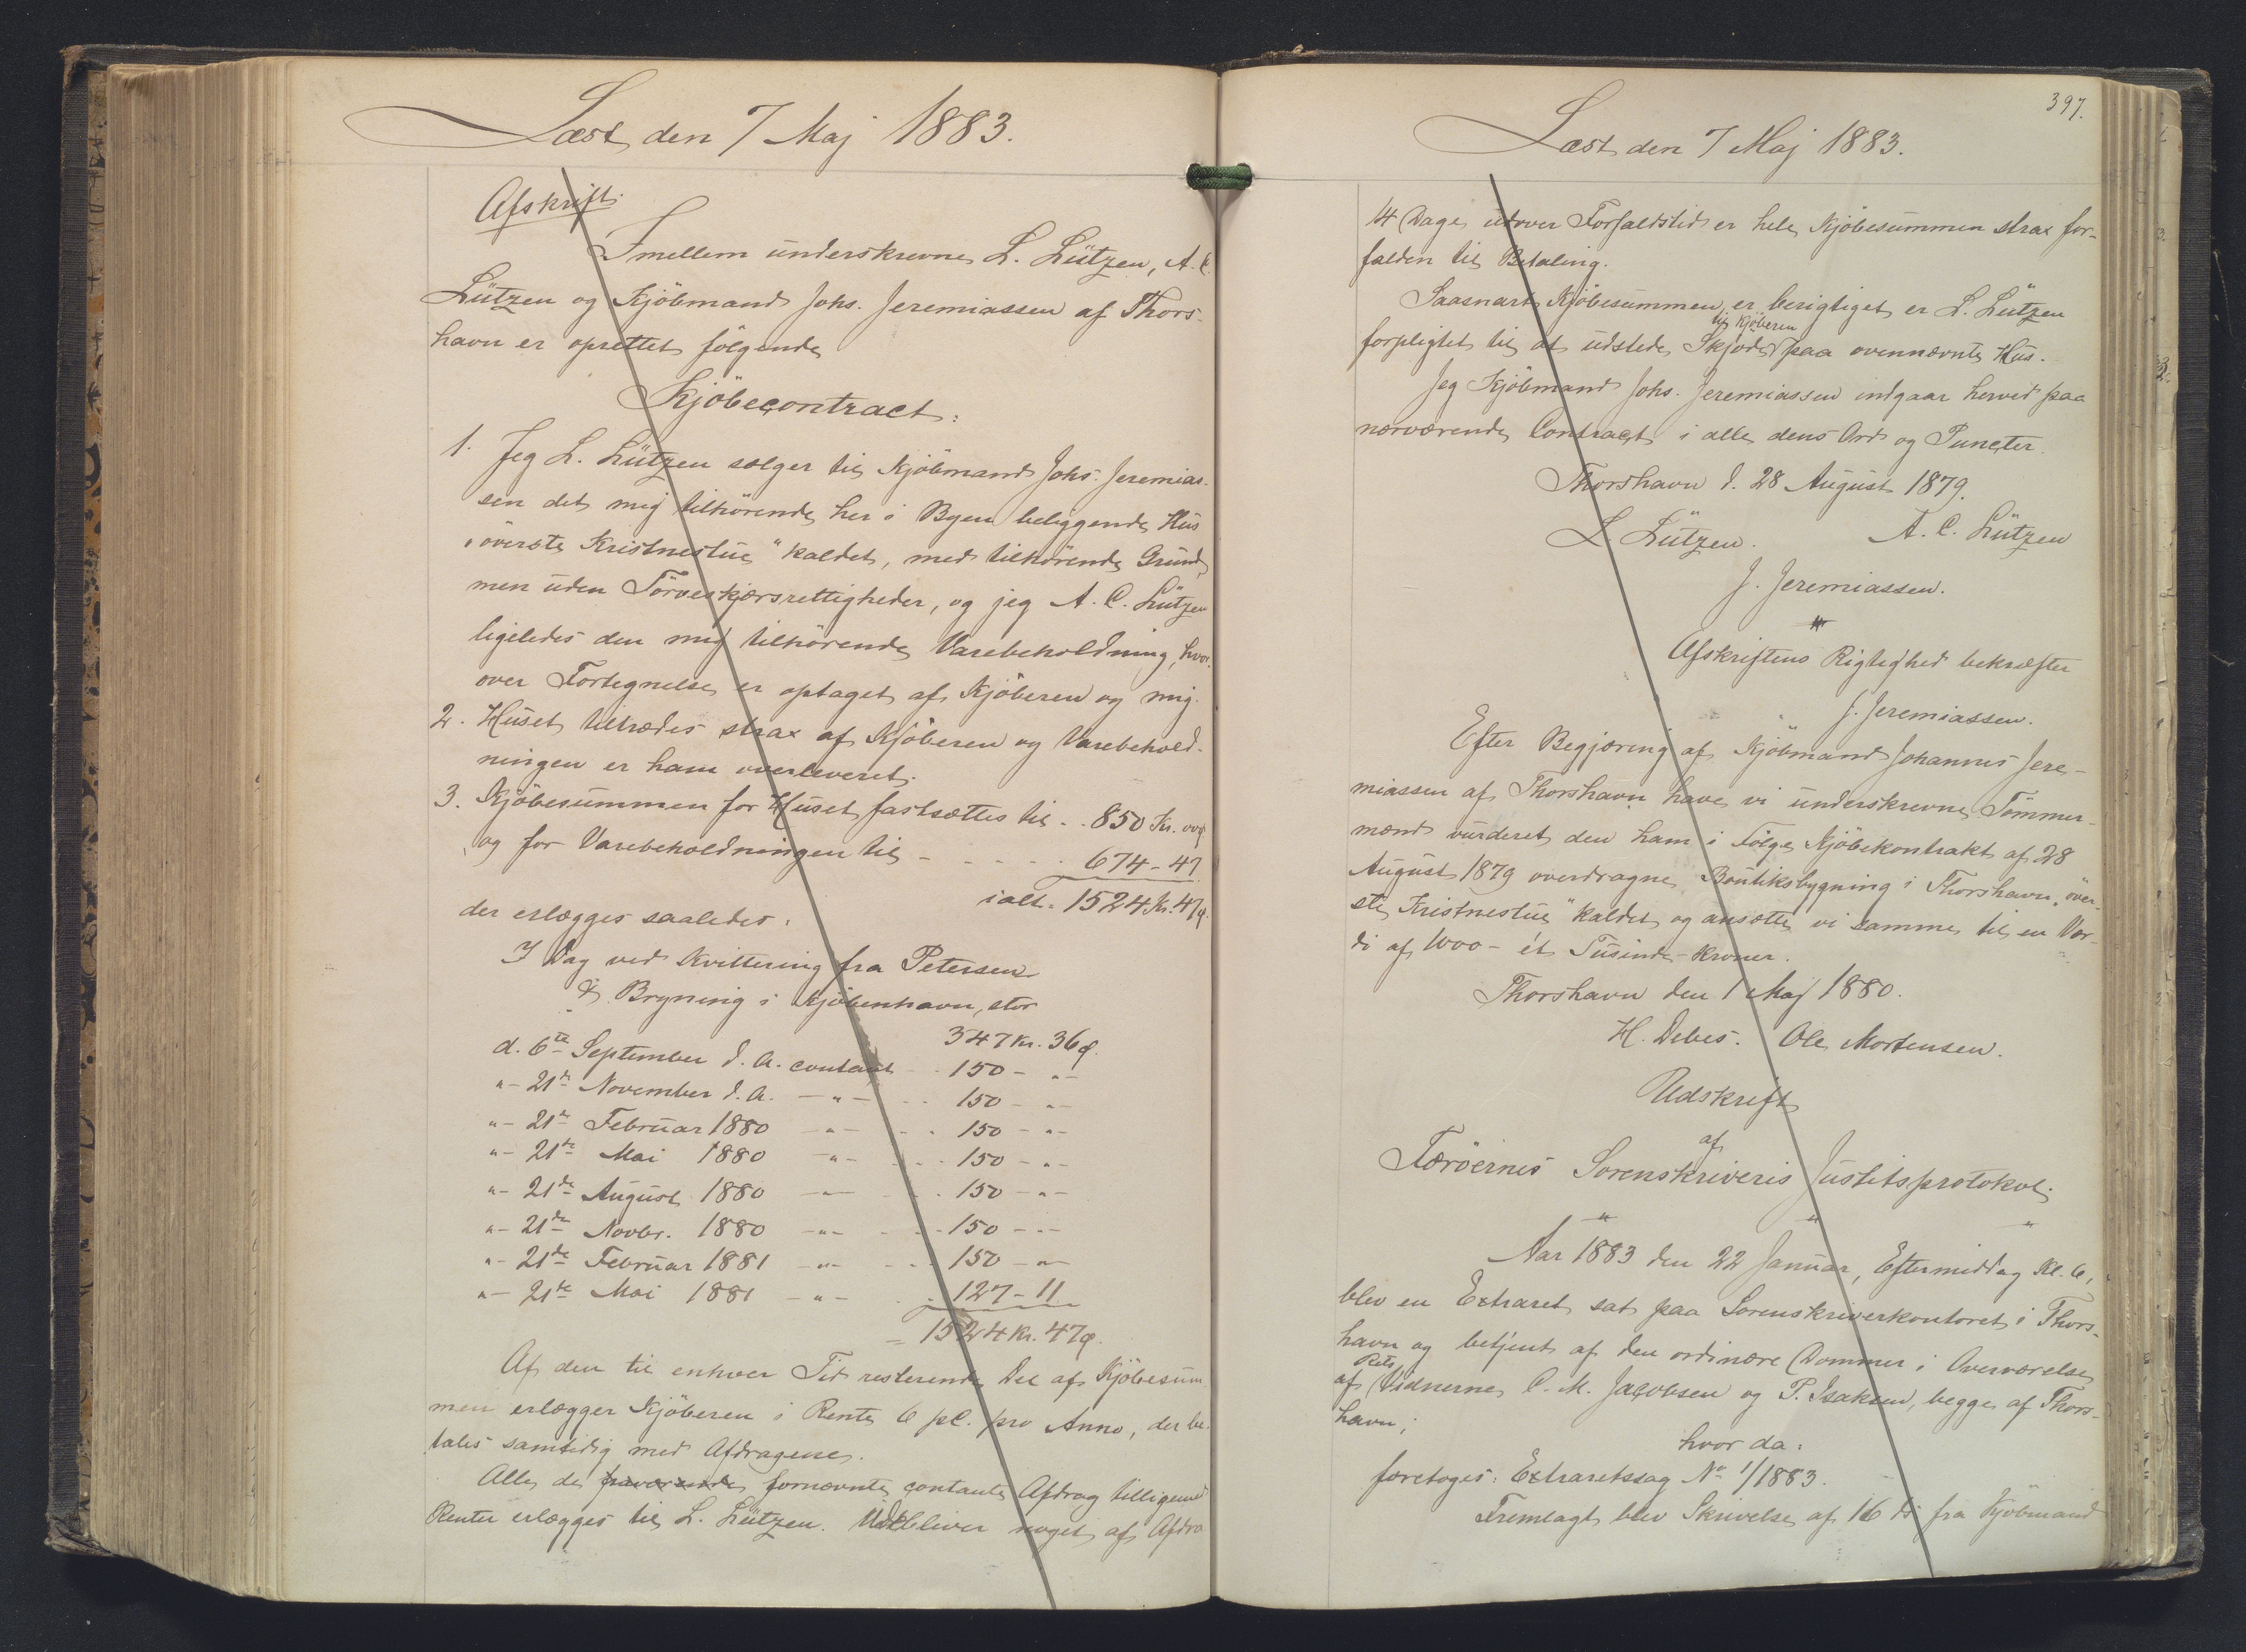 Læst den 7 Maj 1883.
Afskrift.
Imellem underskrevne L. Lützen, A. C.
Lützen og Kjöbmand Johs. Jeremiassen af Thors-
havn er oprettet følgende
Kjöbecontract:
1. Jeg L. Lützen sælger til Kjöbmand Johs. Jeremias-
sen det mig tilhörende her i Byen beliggende Hus
"överste Kristnestue" kaldet, med tilhörende Grund,
men uden Törveskjærsrettigheder, og jeg A. C. Lützen
ligeledes den mig tilhörende Varebeholdning, hvor-
over Fortegnelse er optaget af Kjöberen og mig.
2. Huset tiltrædes strax af Kjöberen og Varebehold-
ningen er ham overleveret.
3. Kjöbesummen for Huset fastsættes til . . 850 Kr. ooø
og for Varebeholdningen til - - - - - 674 - 47
ialt. 1524 Kr. 47ø.
der erlægges saaledes:
I Dag ved Kvittering fra Petersen
& Bryning i Kjöbenhavn, stor
347 Kr. 36ø.
d. 6te September d. A. contant . . 150 - "-
"- 21de November d. A. -"- . . 150 - "-
"- 21de Februar 1880 -"- . . 150 - "-
"- 21de Mai 1880 -"- . . 150 - "-
"- 21de August 1880 -"- . . 150 - "-
"- 21de Novbr. 1880 -"- . . 150 - "-
"- 21de Februar 1881 -"- . . 150 - "-
"- 21de Mai 1881 -"- . . 127 - 11
= 1524 Kr. 47ø.
Af den til enhver Tid resterende Del af Kjöbesum-
men erlægger Kjöberen i Rente 6 pC. pro Anno, der be-
tales samtidig med Afdragene.
Alle de fornævnte contante Afdrag tilligemed
Renter erlægges til L. Lützen. Udebliver noget af Afdra
397.
Læst den 7 Maj 1883.
14 Dage udover Forfaldstid er hele Kjöbesummen strax for-
falden til Betaling.
Saasnart Kjöbesummen er berigtiget er L. Lützen
til Kjöberen
forpligtet til at udstede Skjøde paa ovennævnte Hus.
Jeg Kjöbmand Johs. Jeremiassen indgaar herved paa
nærværende Contract i alle dens Ord og Puncter.
Thorshavn d. 28 August 1879.
L. Lützen. A. C. Lützen
J. Jeremiassen.
Afskriftens Rigtighed bekræfter
J. Jeremiassen.
Efter Begjæring af Kjöbmand Johannes Jere-
miassen af Thorshavn have vi underskrevne Tömmer-
mænd vurderet den ham i Fölge Kjöbekontrakt af 28
August 1879 overdragne Boutiksbygning i Thorshavn "över-
ste Kristnestue" kaldet og ansætte vi samme til en Vær-
di af 1000 - ét Tusinde - Kroner.
Thorshavn den 1 Maj 1880.
H. Debes. Ole Mortensen.
Udskrift
af
Færöernes Sorenskriveris Justitsprotokol.
Aar 1883 den 22 Januar, Eftermiddag Kl. 6,
blev en Extraret sat paa Sorenskriverkontoret i Thors-
havn og betjent af den ordinære Dommer i Overværelse
Rets
af Vidnerne C. M. Jacobsen og P. Isaksen, begge af Thors-
havn;
hvor da:
foretoges: Extraretssag No 1/1883.
Fremlagt blev Skrivelse af 16 ds fra Kjöbmand